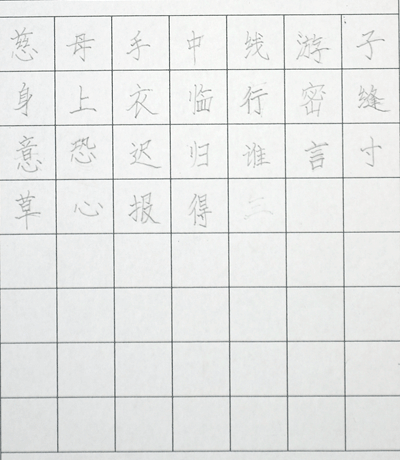 慈母手中线游子
身上衣临行密缝
意恐迟归谁言寸
草心报得三